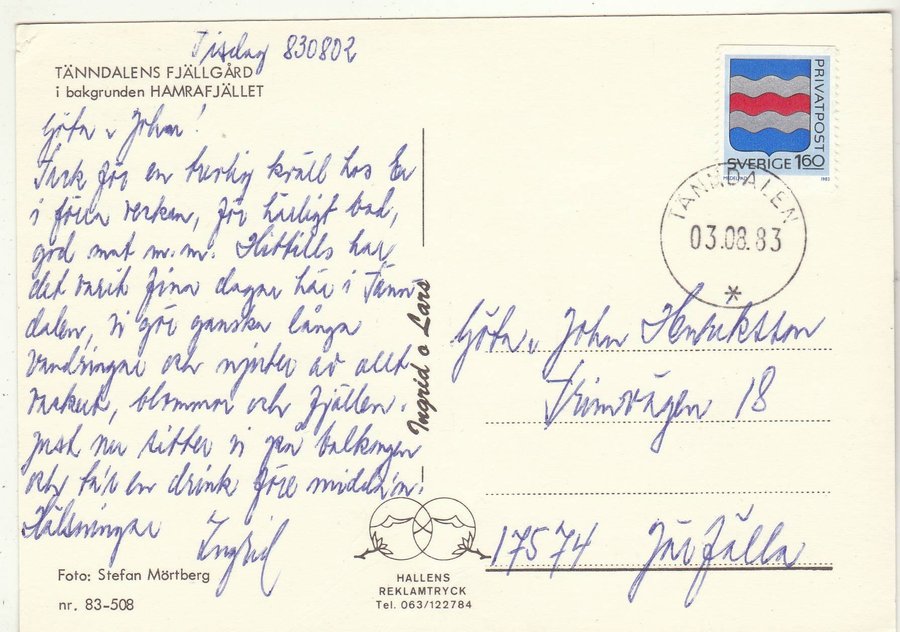 Tisdag 830802
TÄNNDALENS FJÄLLGÅRD
i bakgrunden HAMRAFJÄLLET
Göta o John!
Tack för en trevlig kväll hos Er
i förra veckan, för härligt bad,
god mat m.m. Hittills har
det varit fina dagar här i Tänn-
dalen, vi gör ganska långa
vandringar och njuter av allt
vackert, blommor och fjällen.
Just nu sitter vi på balkongen
och ta'r en drink före midda'n.
Hälsningar
Ingrid
Ingrid o Lars
Foto: Stefan Mörtberg
nr. 83-508
HALLENS
REKLAMTRYCK
Tel. 063/122784
PRIVATPOST
SVERIGE 160
MEDELPAD
1983
TÄNNDALEN
03.08.83
*
Göta o John Henriksson
18
17574 Järfälla